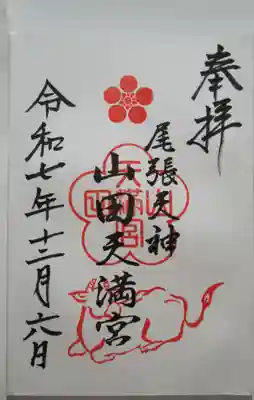 奉拝
尾張天神
山田天満宮
令和七年十二月六日